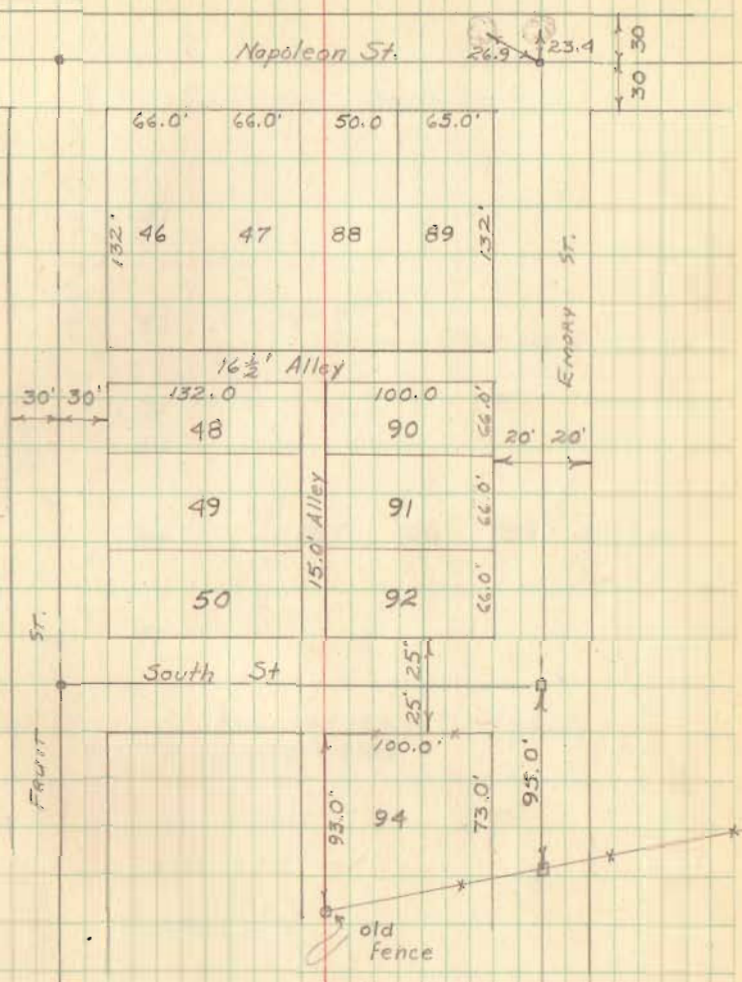 Napoleon St.
26.9 23.4
30
30
66.0' 66.0' 50.0 65.0'
132' 46 47 88 89 132'
EMORY ST.
16½' Alley
30' 30'
132.0 100.0
48 90 66.0'
20' 20'
49 15.0' Alley 91 66.0'
50 92 66.0'
FRUIT ST.
South St
25'
25'
100.0'
93.0' 94 73.0' 95.0'
old
Fence